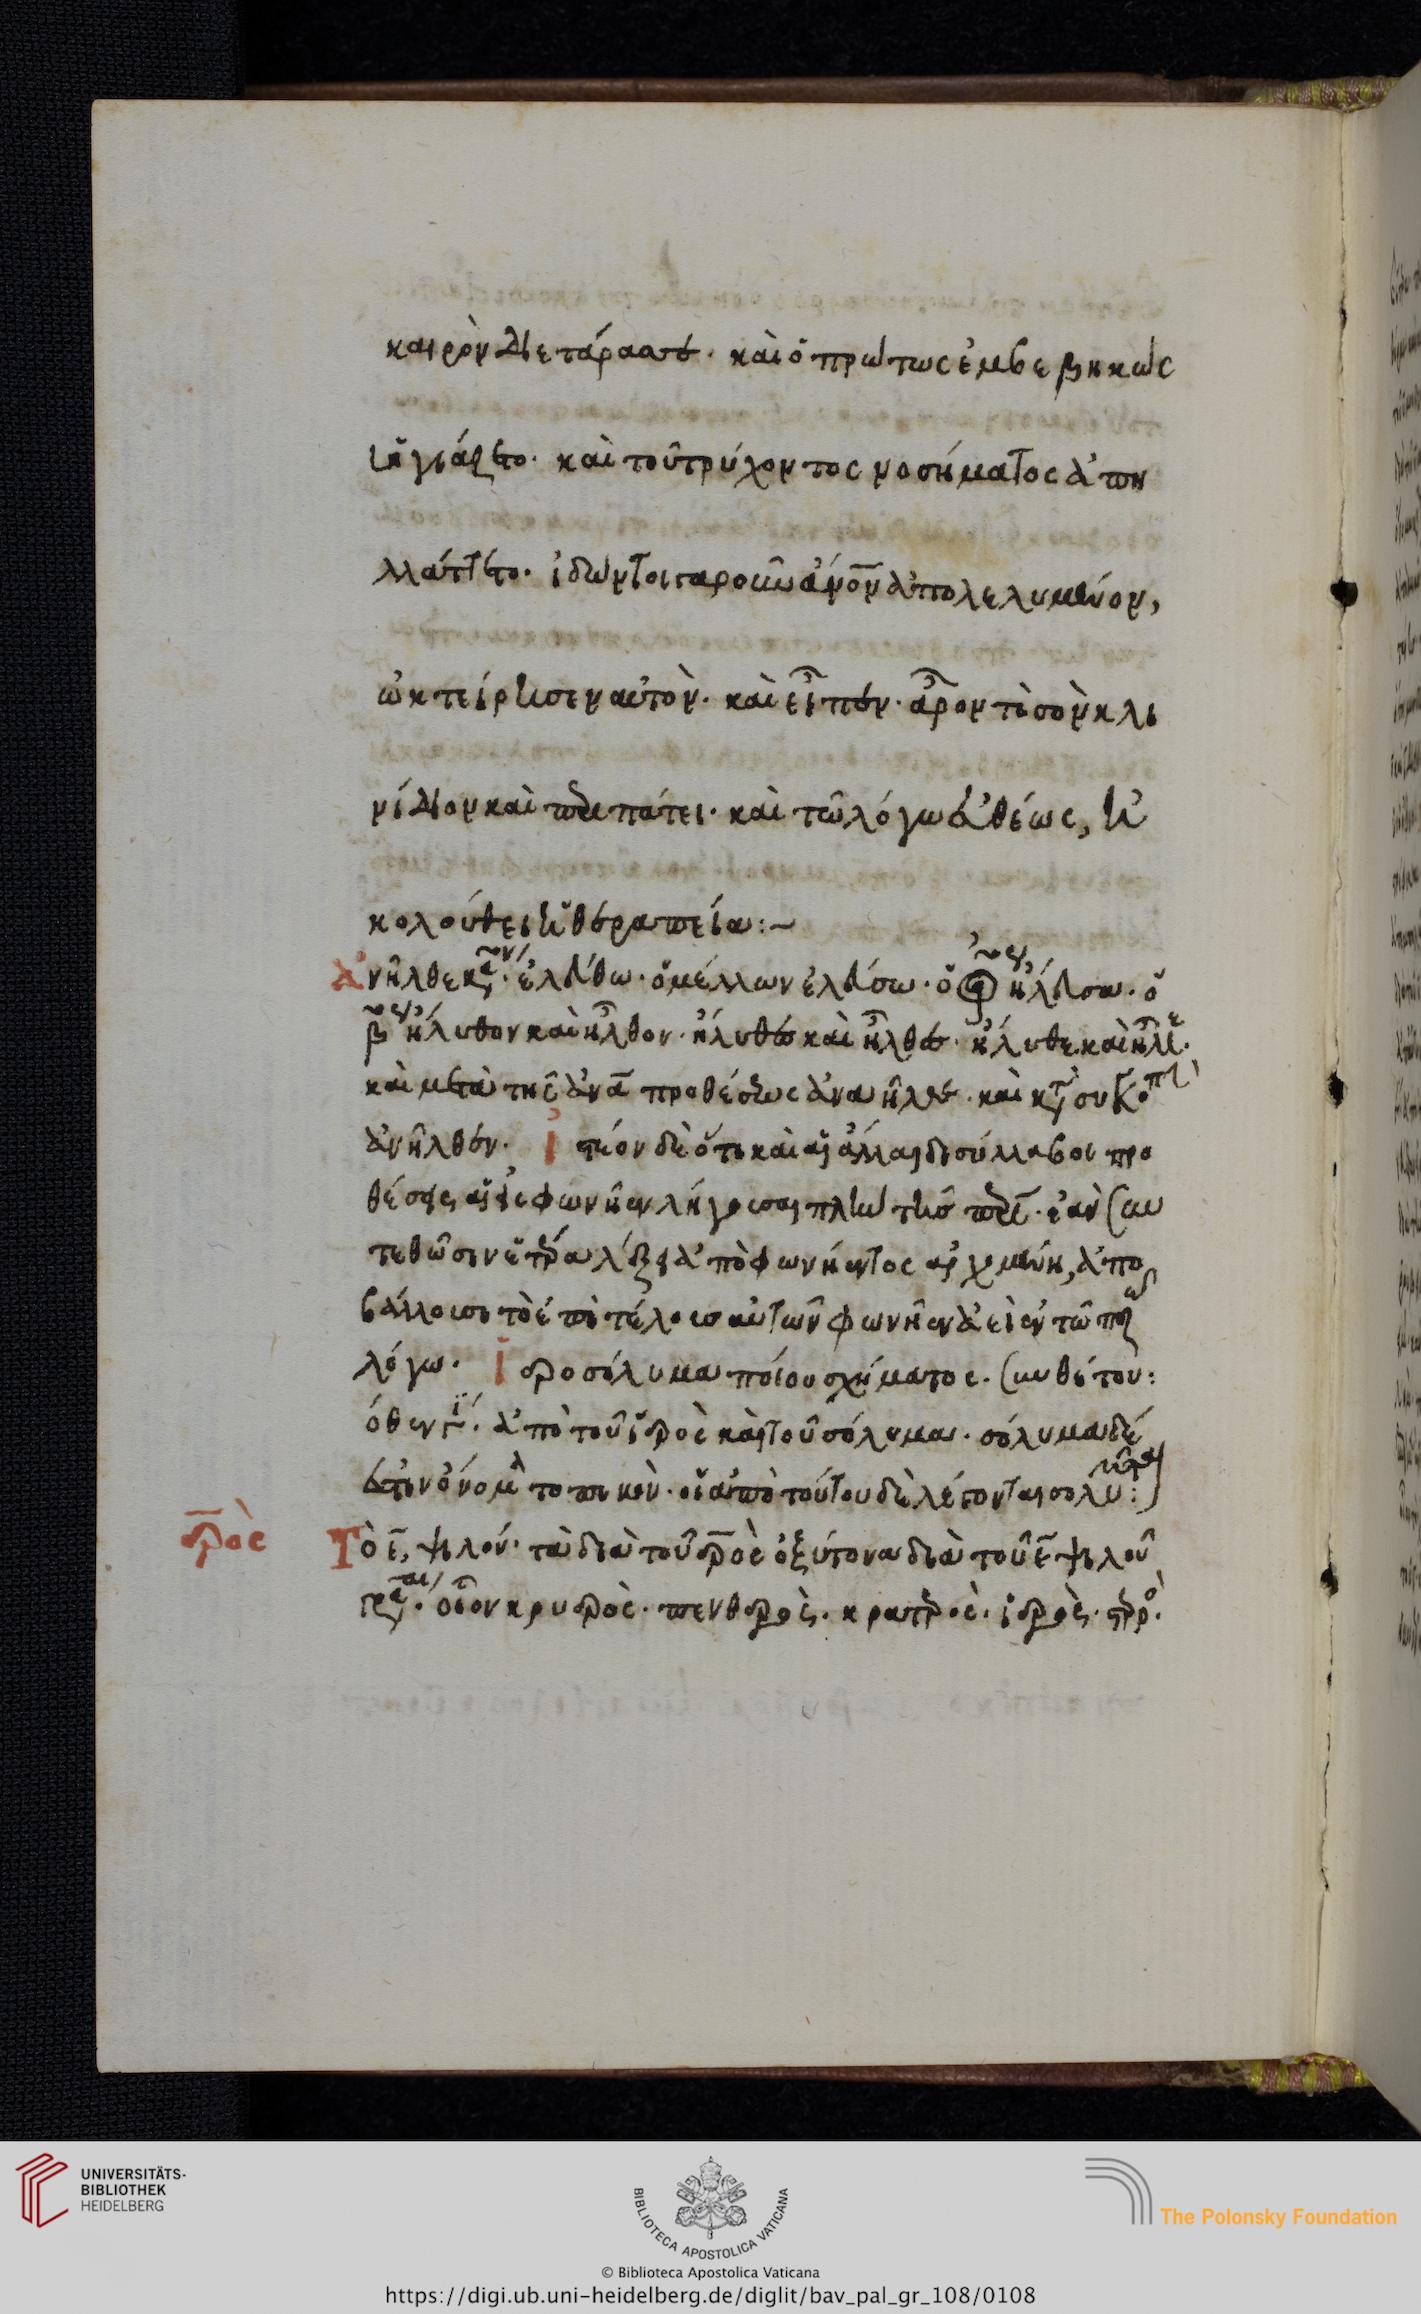 καιρὸν διετάραατε. καὶ ὁ πρώτως ἐμβεβηκὼς
ὑγιάζετο. καὶ τοῦ τρύχοντος νοσήματος ἀπη
λλάττετο. ἰδὼν
ἀπολελυμένον,
ᾠκτείρησεν αὐτὸν. καὶ εἶπεν. ἆρον τὸ σὸν κλι
νίδιον καὶ περιπάτει. καὶ τῶ λόγω εὐθέως, ἠ
κολούθει ἡ θεραπεία:~
Ἀνῆλθε ἐλεύθω. ὁ μέλλων ἐλεύσω. ὁ ἤλευσα. ὁ
β ἤλυθον καὶ ἦλθον. ἤλυθες καὶ ἦλθες. ἤλυθε καὶ ἦλθε.
καὶ μετὰ τῆς ἀνὰ προθέσεως ἀναῆλθε. καὶ
ἀνῆλθεν. Ἰστέον δὲ ὅτι καὶ αἱ ἄλλαι δισύλλαβοι προ
θέσεις αἱ εἰς φωνῆεν λήγουσαι πλὴν τῆς περὶ. ἐὰν συν
τεθῶσιν ἑτέρα λέξει ἀπὸ φωνήεντος ἀρχομένη, ἀπο
βάλλουσι τὸ ἐπὶ τέλους αὐτῶν φωνῆεν ἀεὶ ἐν τῶ πεζῶ
λόγω. Ἱεροσόλυμα ποίου σχήματος. συνθέτου:
ὅθεν ἀπὸ τοῦ ἱερὸς καὶ τοῦ σόλυμα. σόλυμα δέ
ἐστιν ὄνομα τοπικὸν. οἱ ἀπὸ τούτου δὲ λέγονται
ερὸς Τὸ ι, ψιλόν. τὰ διὰ τοῦ ερος ὀξύτονα διὰ τοῦ ε ψιλοῦ
οἷον κρυερὸς. πενθερὸς. κρατερὸς. ἱερὸς.
UNIVERSITÄTS-
BIBLIOTHEK
HEIDELBERG
BIBLIOTECA APOSTOLICA VATICANA
The Polonsky Foundation
© Biblioteca Apostolica Vaticana
https://digi.ub.uni-heidelberg.de/diglit/bav_pal_gr_108/0108